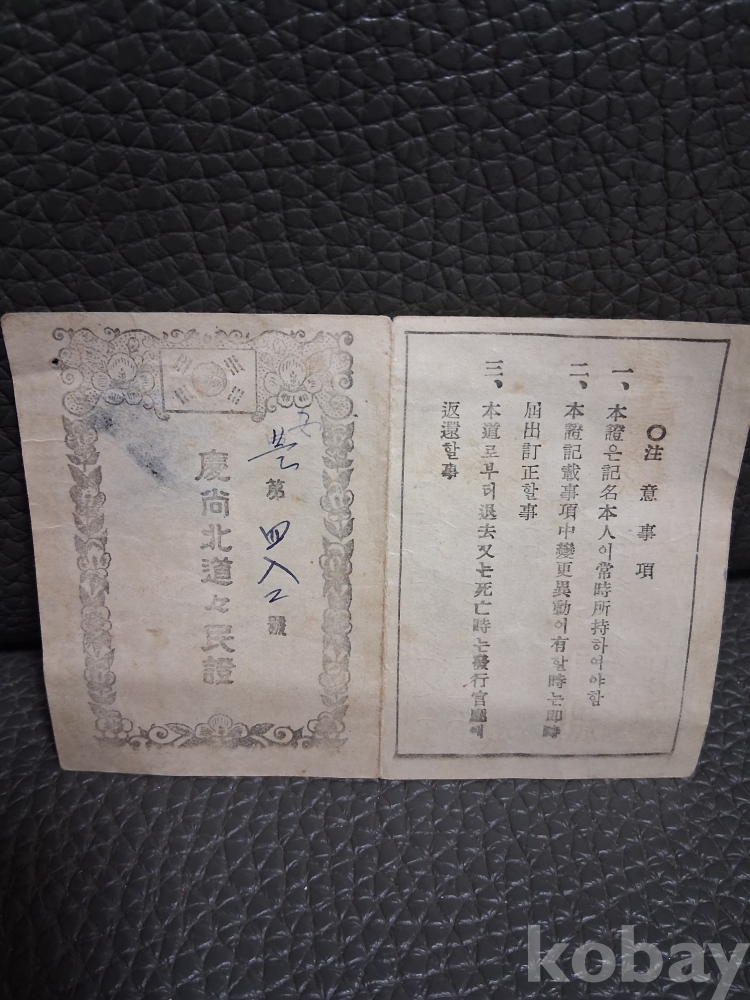 ○注意事項
一、本證은記名本人이常時所持하여야함
二、本證記載事項中變更異動이有할時는即時
屆出訂正할事
三、本道로부터退去又는死亡時는發行官廳에
返還할事
第 四八二 號
慶尙北道々民證
kobay